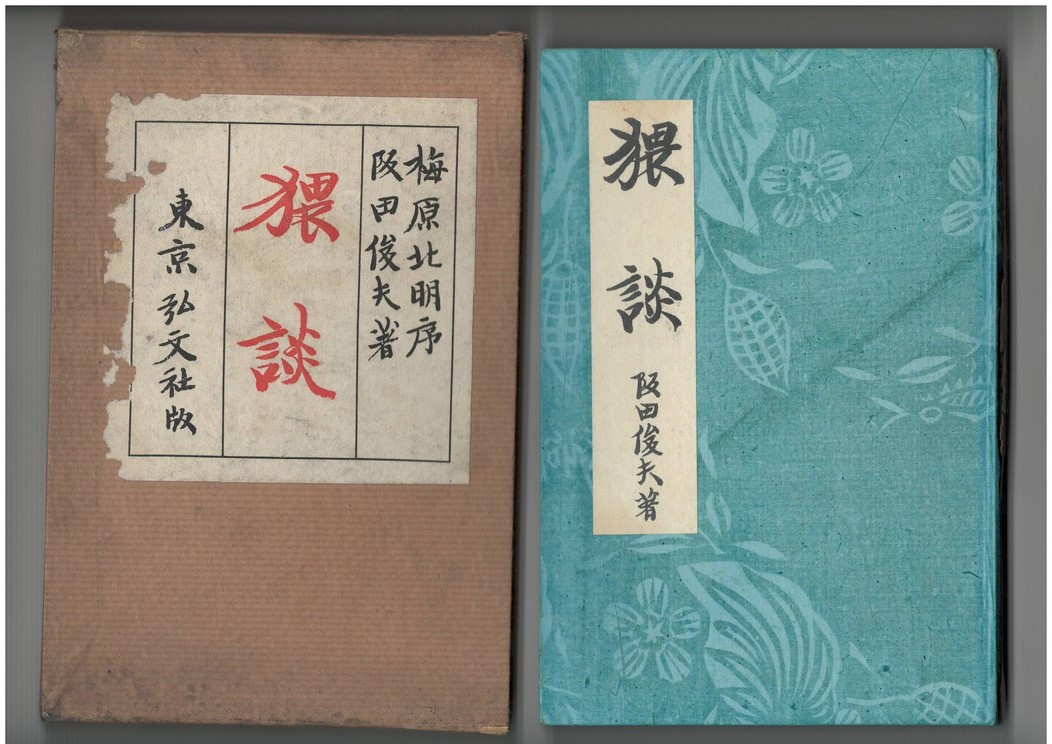 梅原北明序
阪田俊夫著
猥談
東京弘文社版
猥談
阪田俊夫著